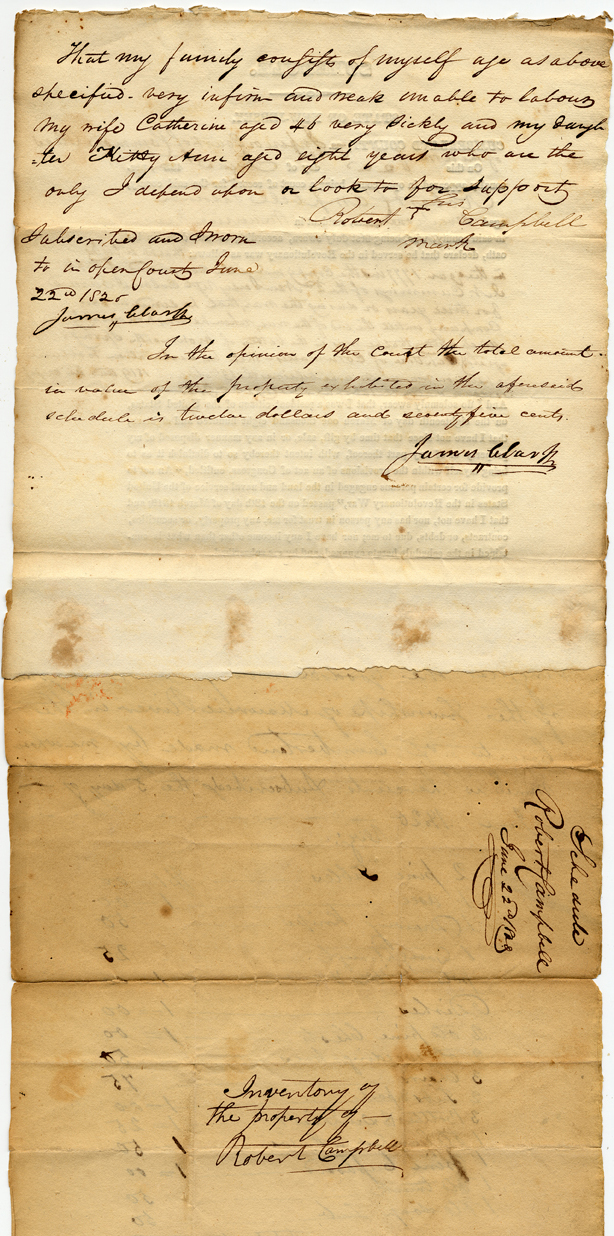 That my family consists of myself age as above
specified - very infirm and weak unable to labour
My wife Catherine aged 46 very Sickly and my Daugh
-ter Kitty Ann aged eight years who are the
only I depend upon or look to for Support
Robert his Campbell
+
mark
Subscribed and Sworn
to in open Court June
22nd 182
James Clark
In the opinion of the court the total amount
in value of the property exhibited in the aforesaid
schedule is twelve dollars and seventy five cents.
James Clark
Schedule
Robert Campbell
June 22nd
Inventory of
the property of —
Robert Campbell